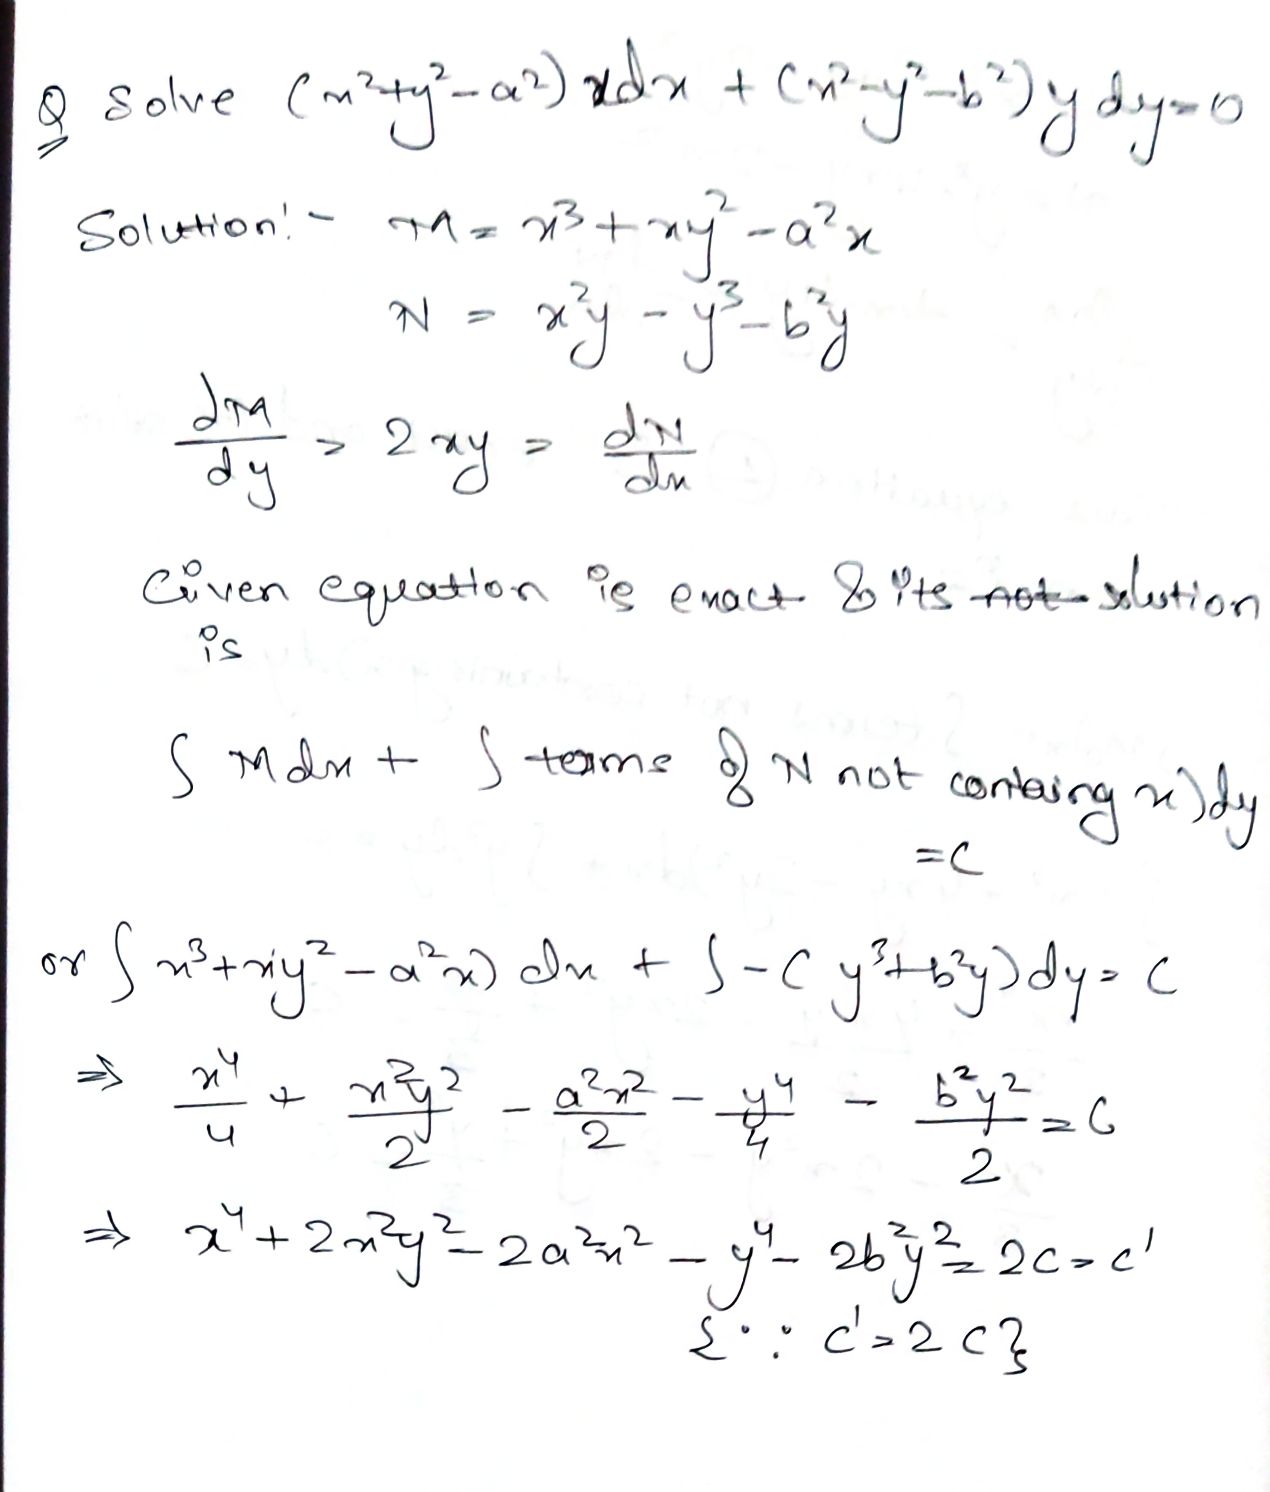 Q Solve (x²+y²-a²) xdx + (x²-y²-b²) y dy=0
Solution:- M = x³ + xy² - a²x
N = x²y - y³ - b²y
dM/dy = 2xy = dN/dx
Given equation is exact & its not solution
is
∫ Mdx + ∫ terms of N not containg x) dy
=C
or ∫ x³+xy² - a²x) dx + ∫ -( y³+b²y) dy = C
⇒ x⁴/4 + x²y²/2 - a²x²/2 - y⁴/4 - b²y²/2 = C
⇒ x⁴ + 2x²y² - 2a²x² - y⁴ - 2b²y² = 2C = C'
{∵ C' = 2C}